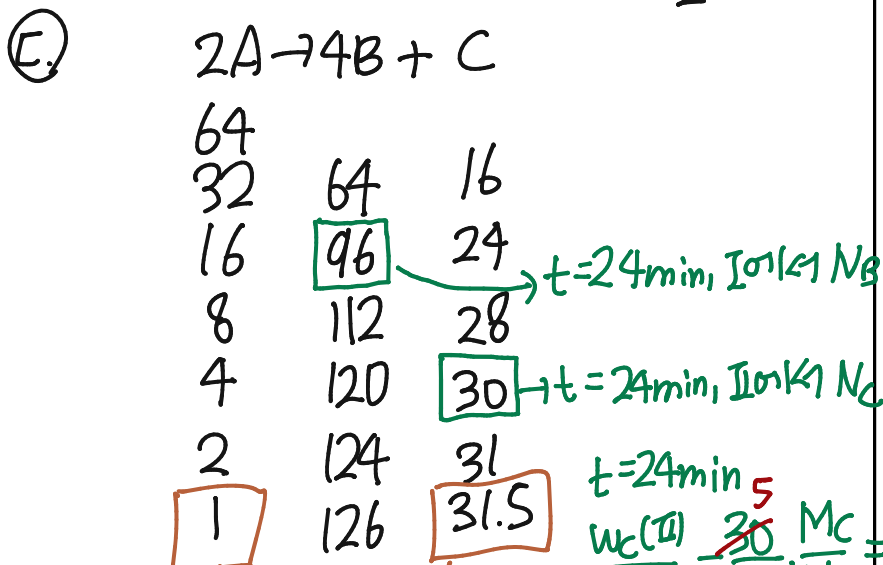 E. 2A→4B + C
64
32 64 16
16 96 24
t=24min, I에서 N_B
8 112 28
4 120 30 → t=24min, II에서 N_C
2 124 31
t=24min
1 126 31.5
5
W_C(II) 30 M_C =